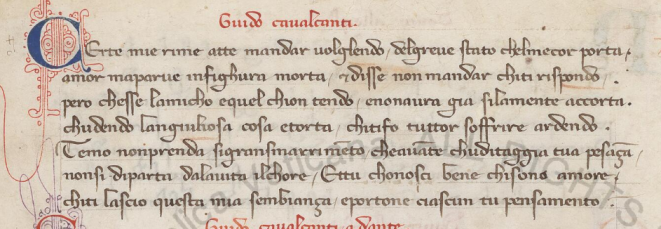 Guido caualcanti.
Certe mie rime atte mandar uolglendo, delgreue stato chelmecor porta,
amor maparue infighura morta, ⁊disse non mandar chiti rispondo.
pero chesse lamicho equel chion tendo, enonaura gia silamente accorta.
chudendo langiuliosa cosa etorta, chitifo tuttor soffrire ardendo.
Temo nonprenda sigransmarrimēto, cheauāte chuditaggia tua pesāça,
nonsi diparta dalauita ilchore, Ettu chonosci bene chisono amore,
chiti lascio questa mia sembiança, eportone ciascun tu pensamento.
Guido caualcanti a dante